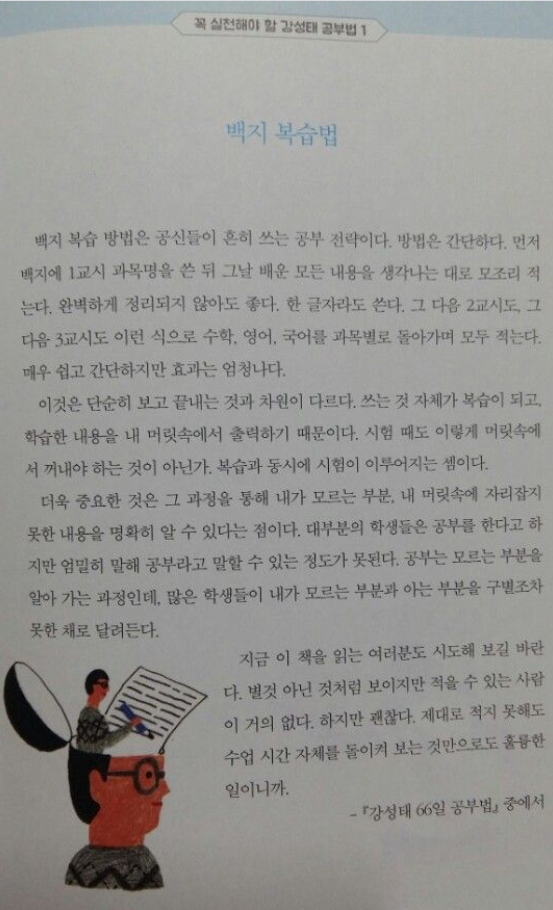 꼭 실천해야 할 강성태 공부법 1
백지 복습법
백지 복습 방법은 공신들이 흔히 쓰는 공부 전략이다. 방법은 간단하다. 먼저
백지에 1교시 과목명을 쓴 뒤 그날 배운 모든 내용을 생각나는 대로 모조리 적
는다. 완벽하게 정리되지 않아도 좋다. 한 글자라도 쓴다. 그 다음 2교시도, 그
다음 3교시도 이런 식으로 수학, 영어, 국어를 과목별로 돌아가며 모두 적는다.
매우 쉽고 간단하지만 효과는 엄청나다.
이것은 단순히 보고 끝내는 것과 차원이 다르다. 쓰는 것 자체가 복습이 되고,
학습한 내용을 내 머릿속에서 출력하기 때문이다. 시험 때도 이렇게 머릿속에
서 꺼내야 하는 것이 아닌가. 복습과 동시에 시험이 이루어지는 셈이다.
더욱 중요한 것은 그 과정을 통해 내가 모르는 부분, 내 머릿속에 자리잡지
못한 내용을 명확히 알 수 있다는 점이다. 대부분의 학생들은 공부를 한다고 하
지만 엄밀히 말해 공부라고 말할 수 있는 정도가 못된다. 공부는 모르는 부분을
알아 가는 과정인데, 많은 학생들이 내가 모르는 부분과 아는 부분을 구별조차
못한 채로 달려든다.
지금 이 책을 읽는 여러분도 시도해 보길 바란
다. 별것 아닌 것처럼 보이지만 적을 수 있는 사람
이 거의 없다. 하지만 괜찮다. 제대로 적지 못해도
수업 시간 자체를 돌이켜 보는 것만으로도 훌륭한
일이니까.
- 『강성태 66일 공부법』 중에서